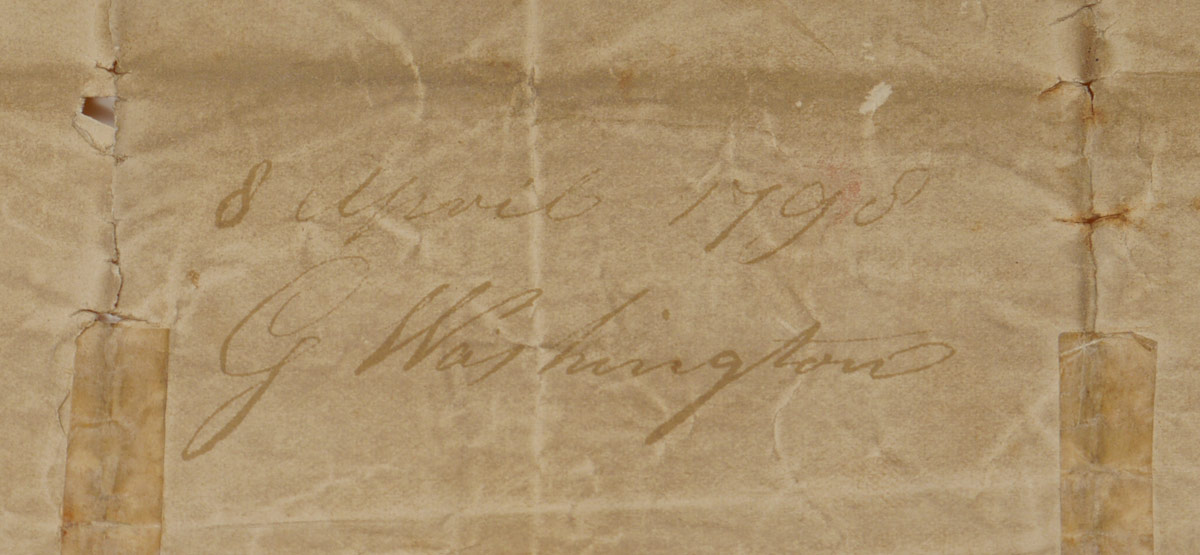 8 April 1798
G Washington